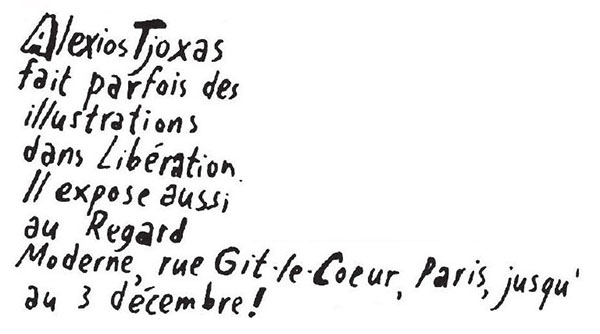 Alexios Tjoxas
fait parfois des
illustrations
dans Libération.
Il expose aussi
au Regard
Moderne, rue Git-le-Coeur, Paris, jusqu'
au 3 décembre!